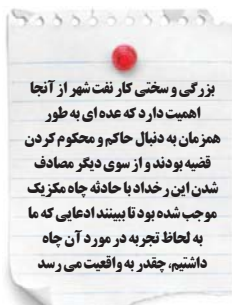 بزرگی و سختی کار نفت شهر از آنجا
اهمیت دارد که عده ای به طور
همزمان به دنبال حاکم و محکوم کردن
قضیه بودند و از سوی دیگر مصادف
شدن این رخداد با حادثه چاه مکزیک
موجب شده بود تا ببینند ادعایی که ما
به لحاظ تجربه در مورد آن چاه
داشتیم، چقدر به واقعیت می رسد